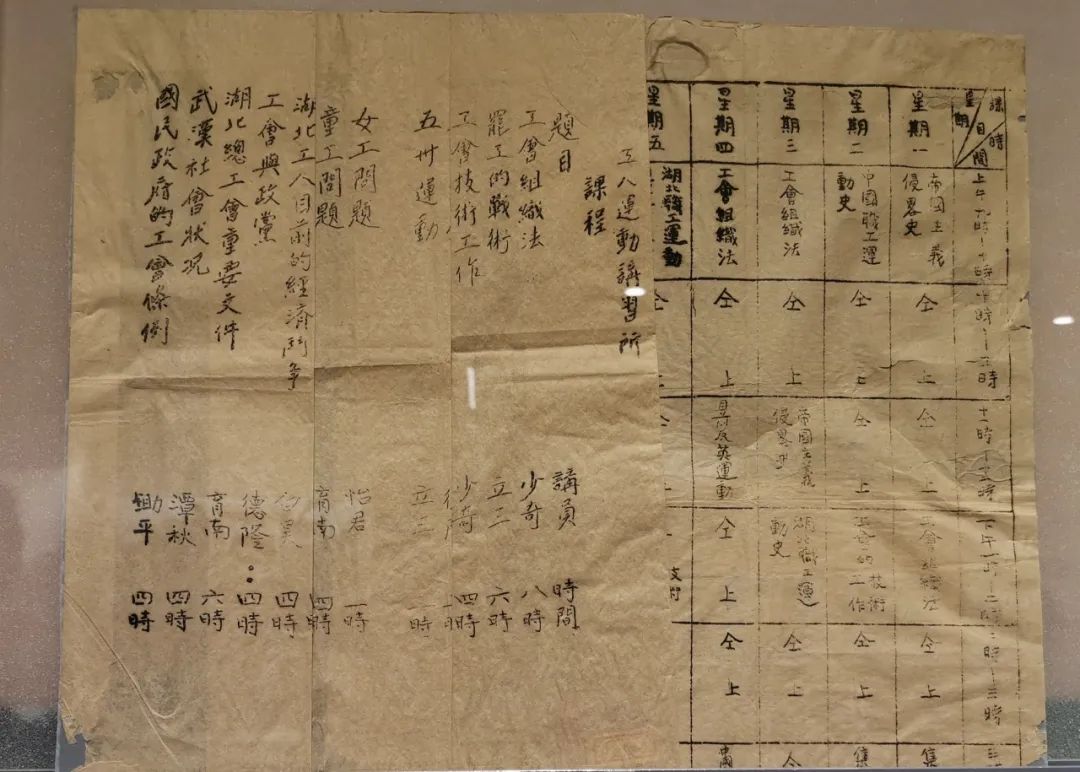 課 時
星 目 間
期
上午九時－十時
十時－十一時
十一時－十二時
下午一時－二時
二時－三時
星期一
帝國主義
侵畧史
仝上
仝上
工會組織法
仝上
集
星期二
中國職工運
動史
仝上
仝上
工會的技術
工作
仝上
集
星期三
工會組織法
仝上
帝國主義
侵畧史
湖北職工運
動史
仝上
仝
星期四
工會組織法
仝上
反英運動
仝上
仝上
星期五
湖北職工運動
仝
工人運動講習所
課程
題目 講員 時間
工會組織法 少奇 八時
罷工的戰術 立三 六時
工會技術工作 少奇 四時
五卅運動 立三 一時
女工問題 怡君 一時
童工問題 育南 四時
湖北工人目前的經濟鬥爭 四時
工會與政黨 德隆 四時
湖北總工會重要文件 育南 六時
武漢社會狀况 潭秋 四時
國民政府的工會條例 鋤平 四時